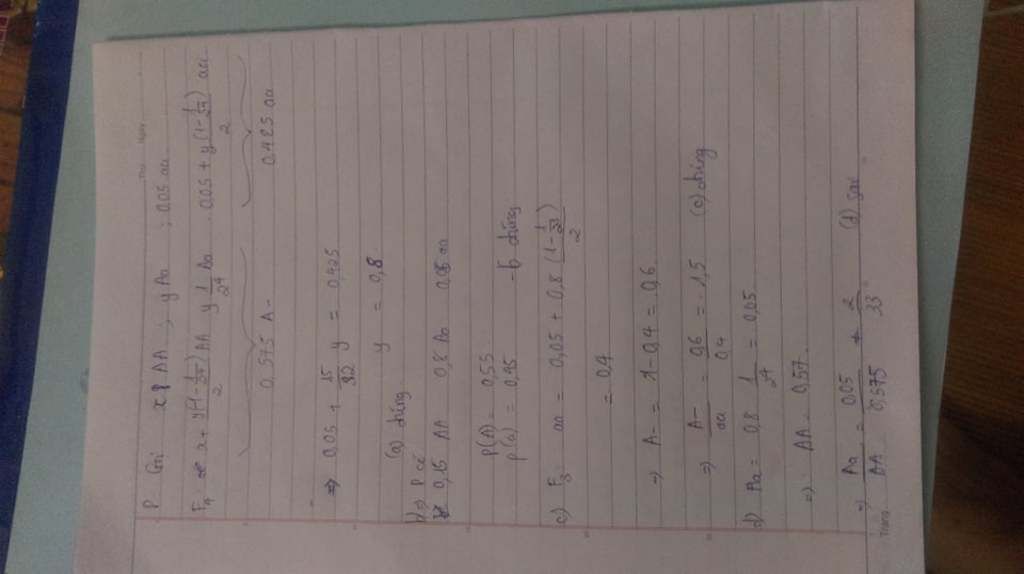 P Gọi x AA ; y Aa ; 0,05 aa
F4 x + y(1-1/2^4)/2 AA y 1/2^4 Aa 0,05 + y(1-1/2^4)/2 aa
0,575 A- 0,425 aa
=> 0,05 + 15/32 y = 0,425
y = 0,8
(a) đúng
b) => P có 0,15 AA 0,8 Aa 0,05 aa
p(A) = 0,55
p(a) = 0,45 - b đúng
c) F3 aa = 0,05 + 0,8 (1-1/2^3)/2
= 0,4
-> A- = 1-0,4 = 0,6
=> A-/aa = 0,6/0,4 = 1,5 (c) đúng
d) Aa = 0,8 1/2^4 = 0,05
=) AA = 0,57
=) Aa/AA = 0,05/0,575 ≠ 2/33 (d) sai
Trang